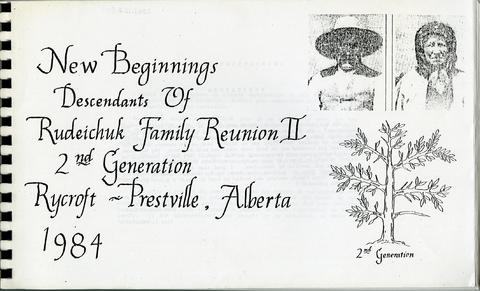 New Beginnings
Descendants Of
Rudeichuk Family Reunion II
2nd Generation
Rycroft ~ Prestville, Alberta
1984
2nd Generation